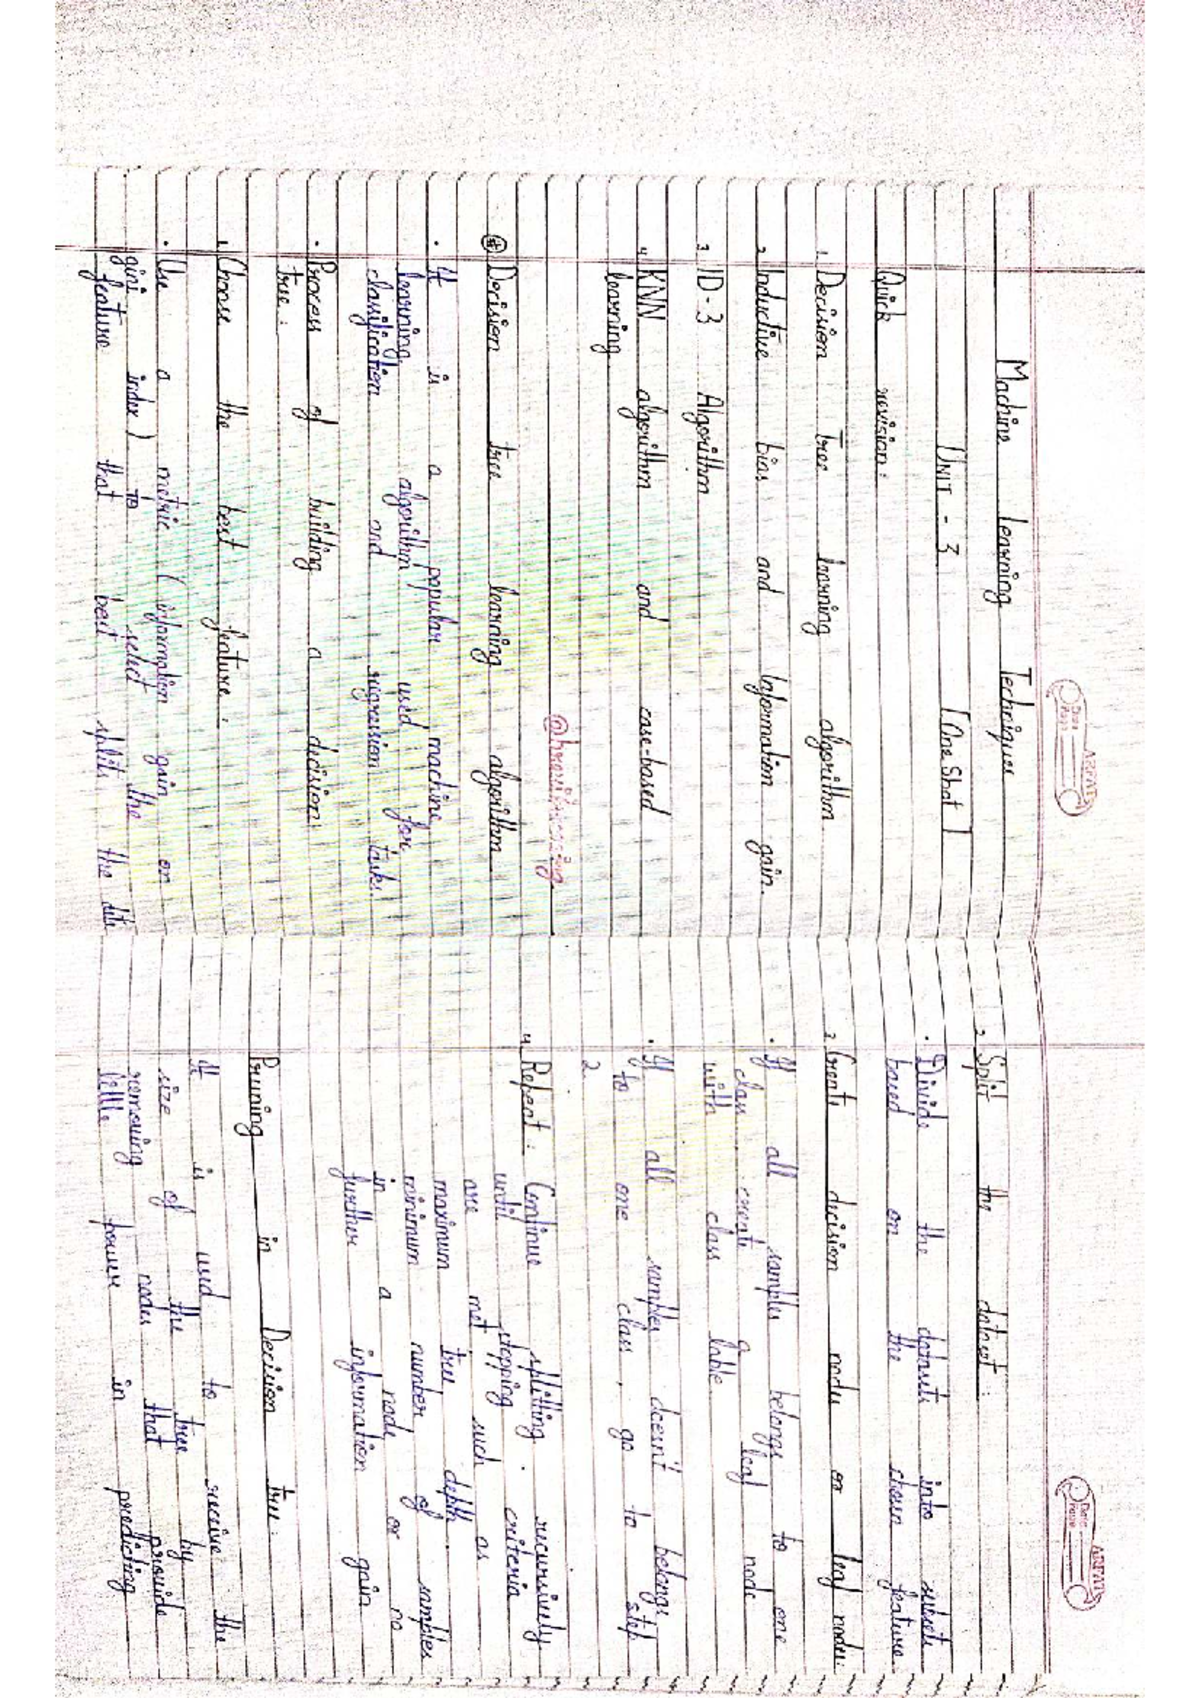 Machine learning Techniques
UNIT - 3 [One Shot]
Quick revision:
1. Decision Tree learning algorithm
2. Inductive bias and Information gain.
3. ID-3 Algorithm
4. KNN algorithm and case-based
learning.
Decision tree learning algorithm
• It is a popular machine
learning algorithm used for
classification and regression tasks.
• Process of building a decision
tree:
1. Choose the best feature:
• Use a metric (information gain or
gini index) to select the
feature that best splits the data
ARFAT
Date
Page
2. Split the dataset:
• Divide the datasets into subsets
based on the chosen feature
3. Create decision nodes or leaf nodes:
• If all samples belongs to one
class create a leaf node
with class lable
• If all samples doesn't belongs
to one class, go to step
2.
4. Repeat: Continue splitting recursively
until stopping criteria
are met such as
maximum tree depth.
minimum number of samples
in a node or no
further information gain
Pruning in Decision tree:
It is used to the
size of the tree by
removing nodes that provide
little power in predicting
ARFAT
Date
Page